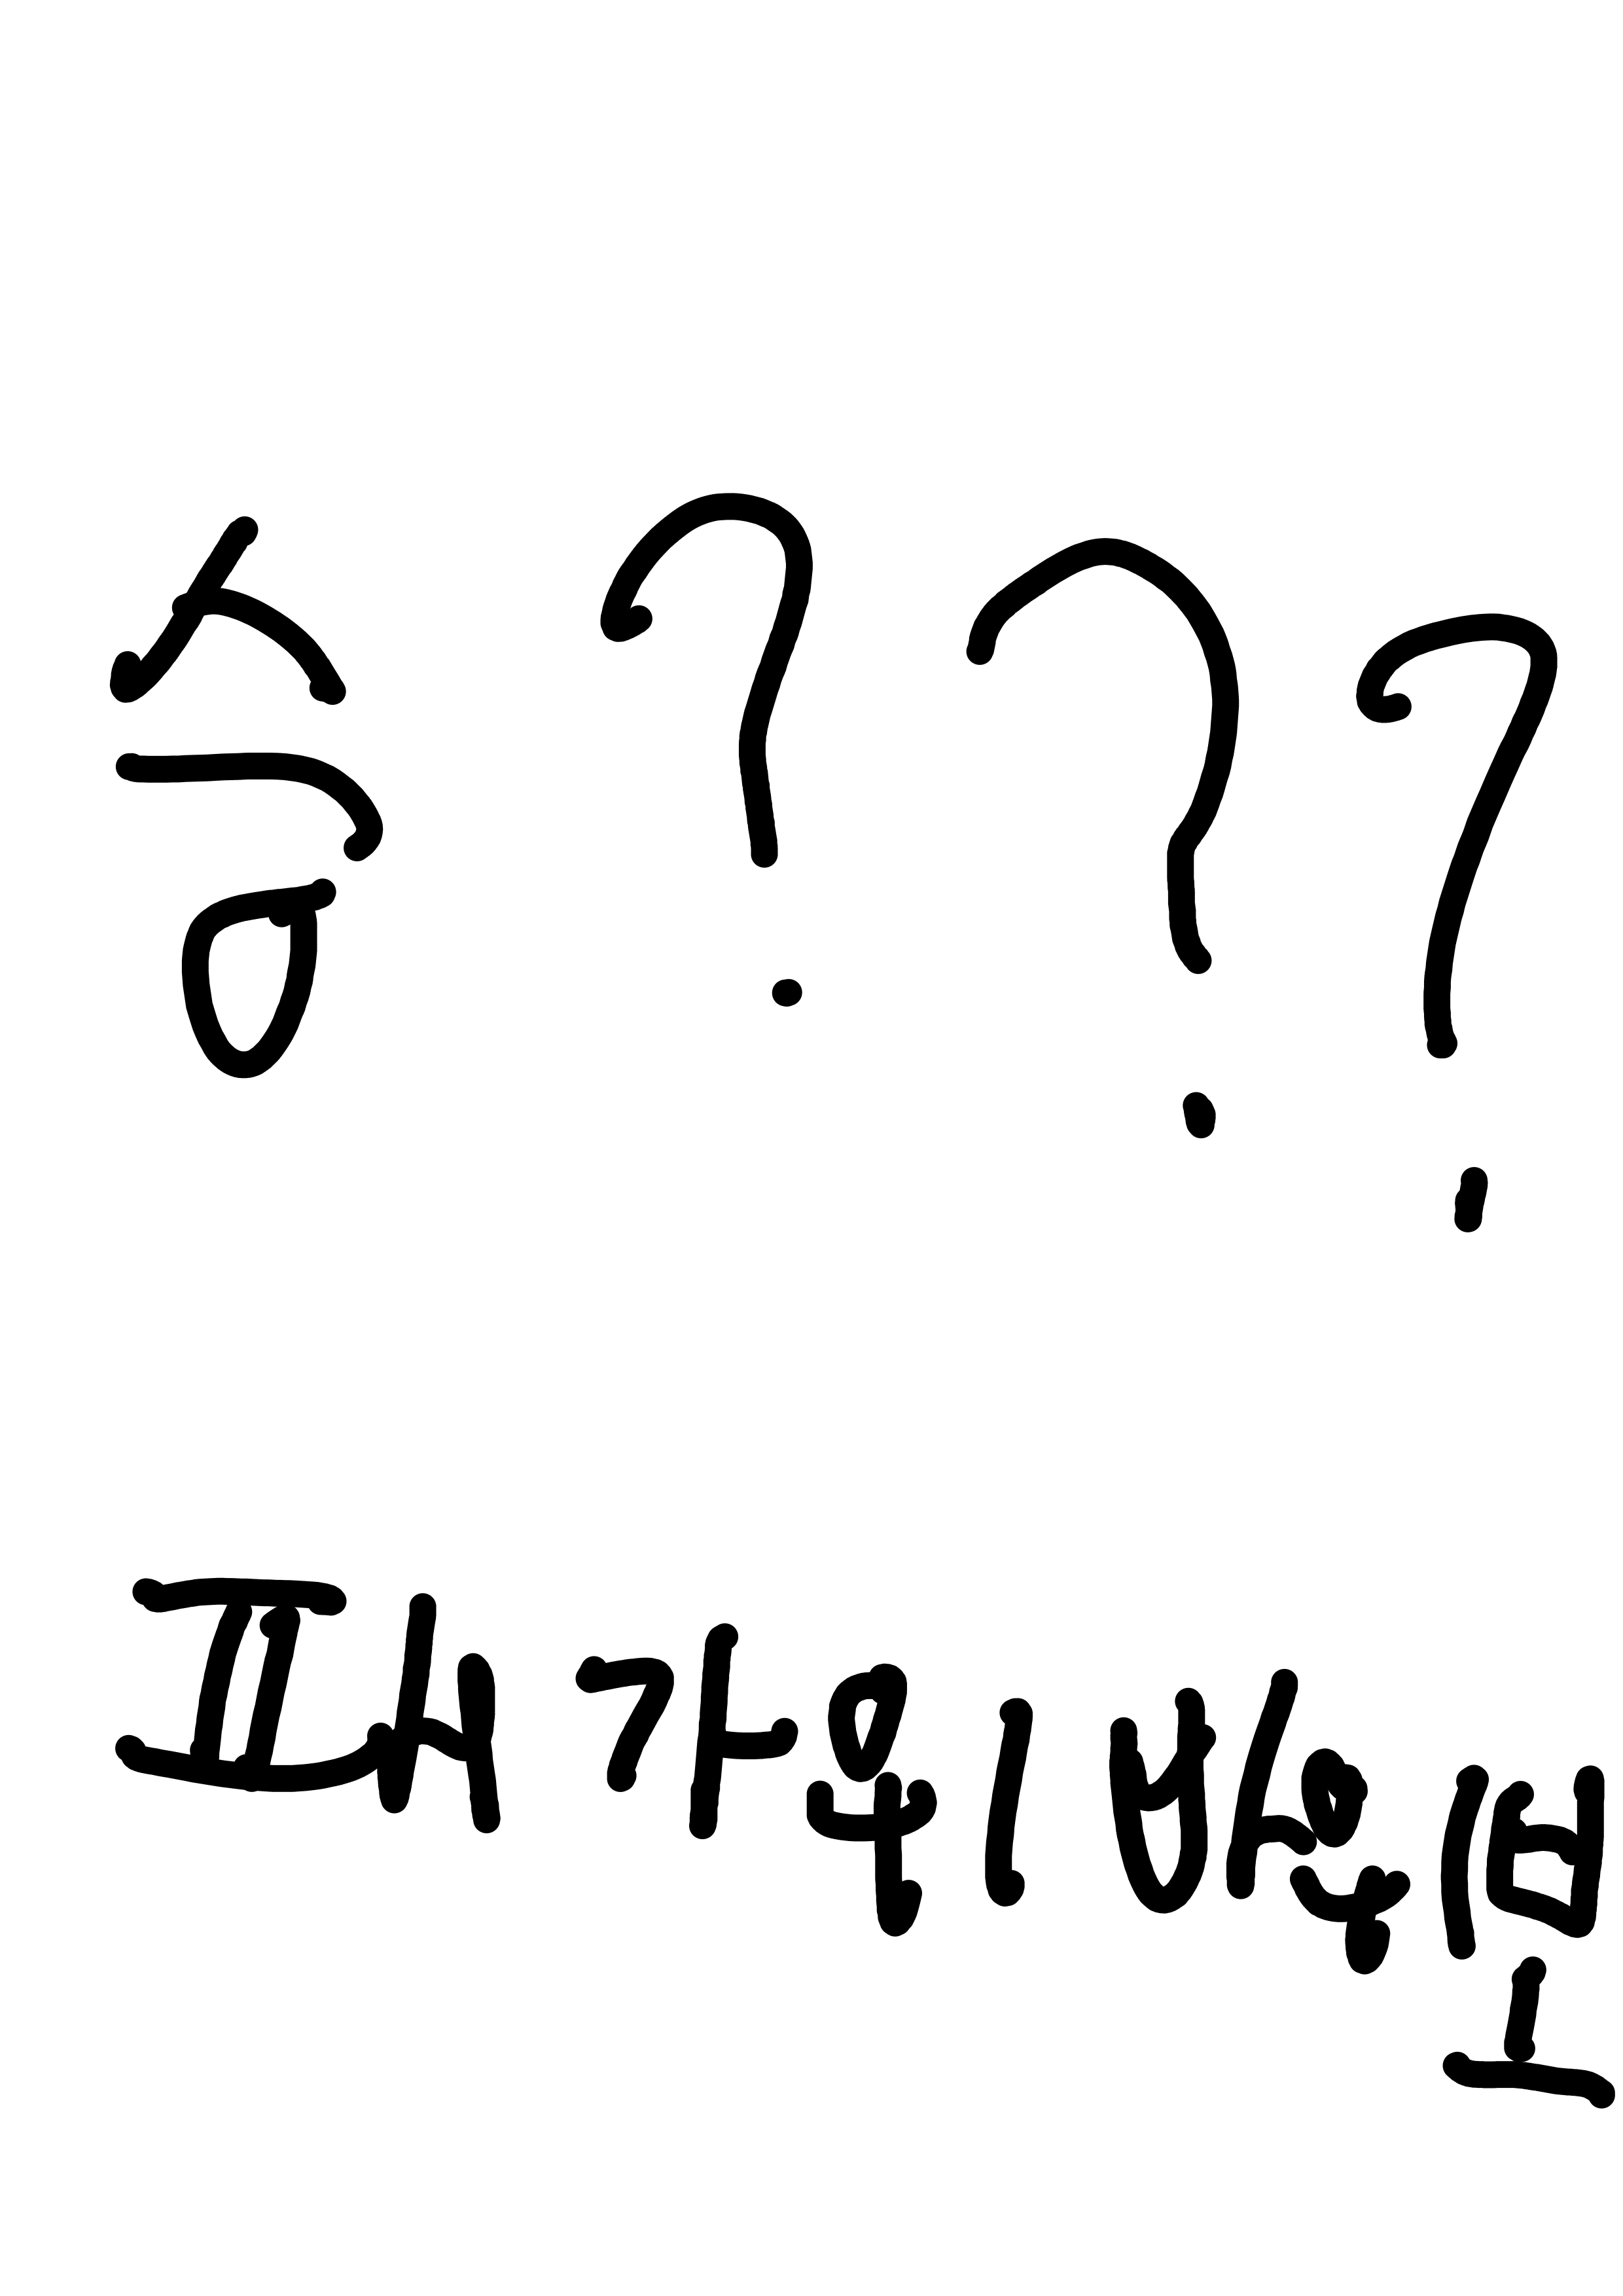 승???
패가위바위보